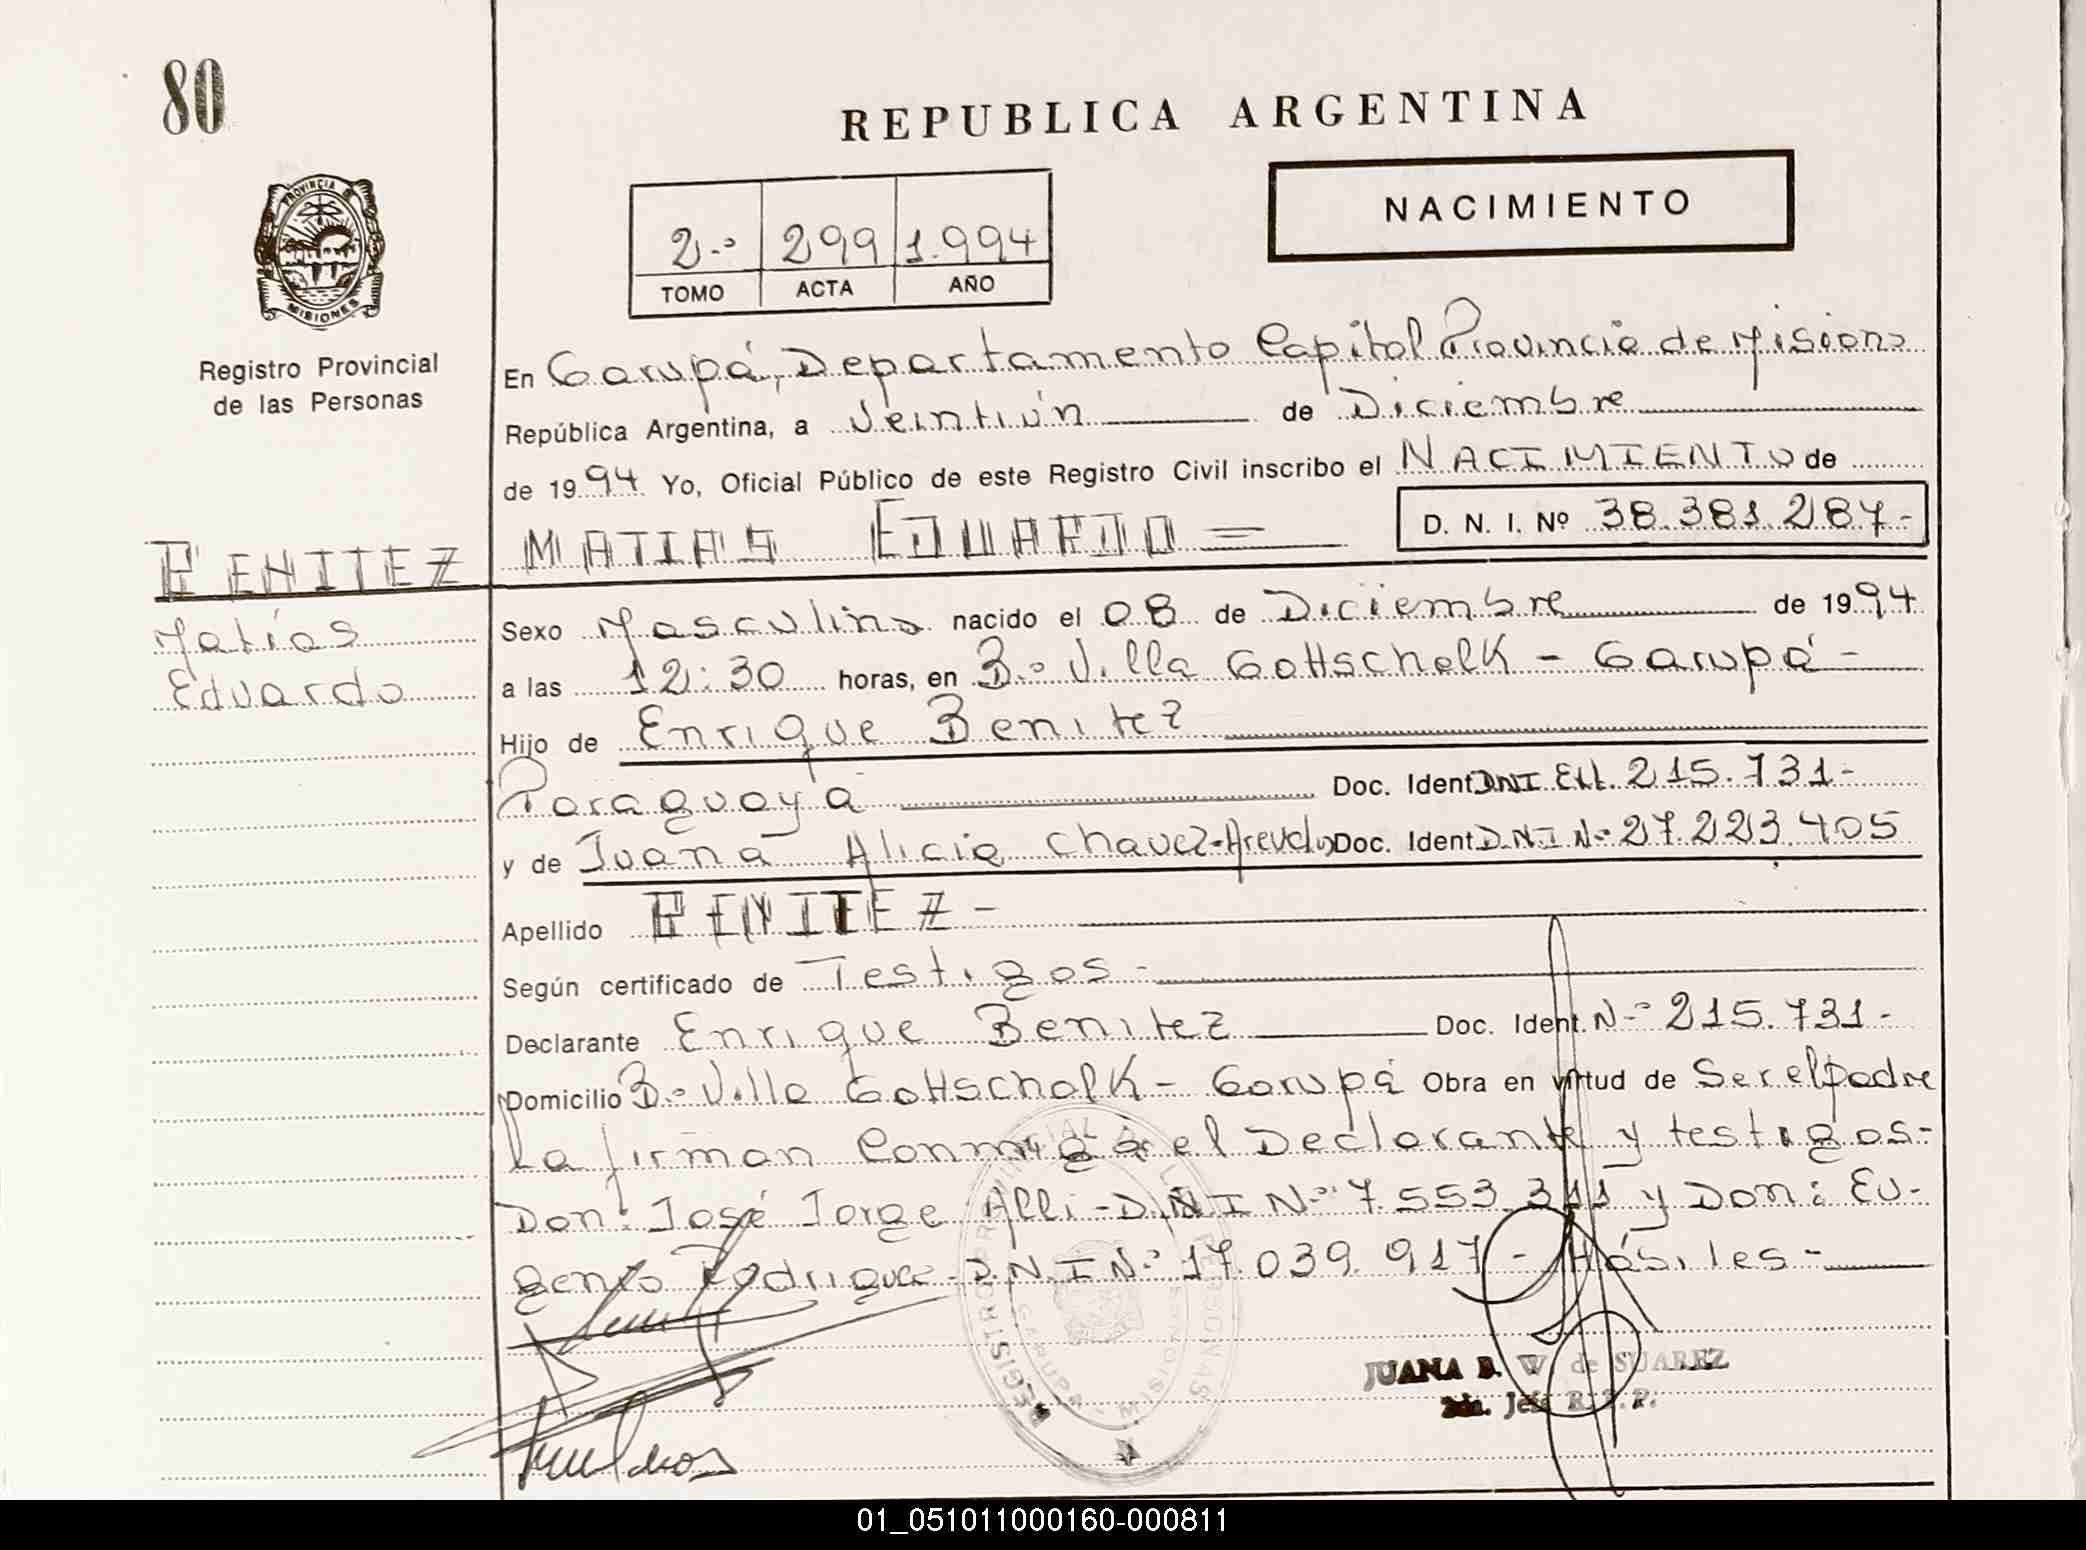 80
REPUBLICA ARGENTINA
NACIMIENTO
2.º 299 1.994
TOMO ACTA AÑO
PROVINCIA DE
MISIONES
Registro Provincial
de las Personas
En Garupá, Departamento Capital Provincia de Misiones
República Argentina, a Veintiún de Diciembre
de 1994 Yo, Oficial Público de este Registro Civil inscribo el NACIMIENTO de
D. N. I. Nº 38.381.287-
BENITEZ MATIAS EDUARDO =
Matías
Eduardo
Sexo Masculino nacido el 08 de Diciembre de 1994
a las 12:30 horas, en B.º Villa Gottschalk - Garupá -
Hijo de Enrique Benitez
Paraguaya Doc. Ident. 215.731-
y de Juana Alicia Chavez-Arevalo Doc. Ident D.N.I Nº 27.223.405
Apellido BENITEZ -
Según certificado de Testigos -
Declarante Enrique Benitez Doc. Ident. Nº 215.731-
Domicilio B.º Villa Gottschalk - Garupá Obra en virtud de Ser el padre
La firman Conmigo el Declarante y testigos-
Don: José Jorge Alli - D.N.I Nº 7.553.311 y Don: Eu-
genio Rodriguez D.N.I Nº 17.039.917 - Hábiles -
REGISTRO PROVINCIAL DE LAS PERSONAS
GARUPA - MISIONES
JUANA B. W de SUAREZ
2da. Jefe R.P.P.
01_051011000160-000811